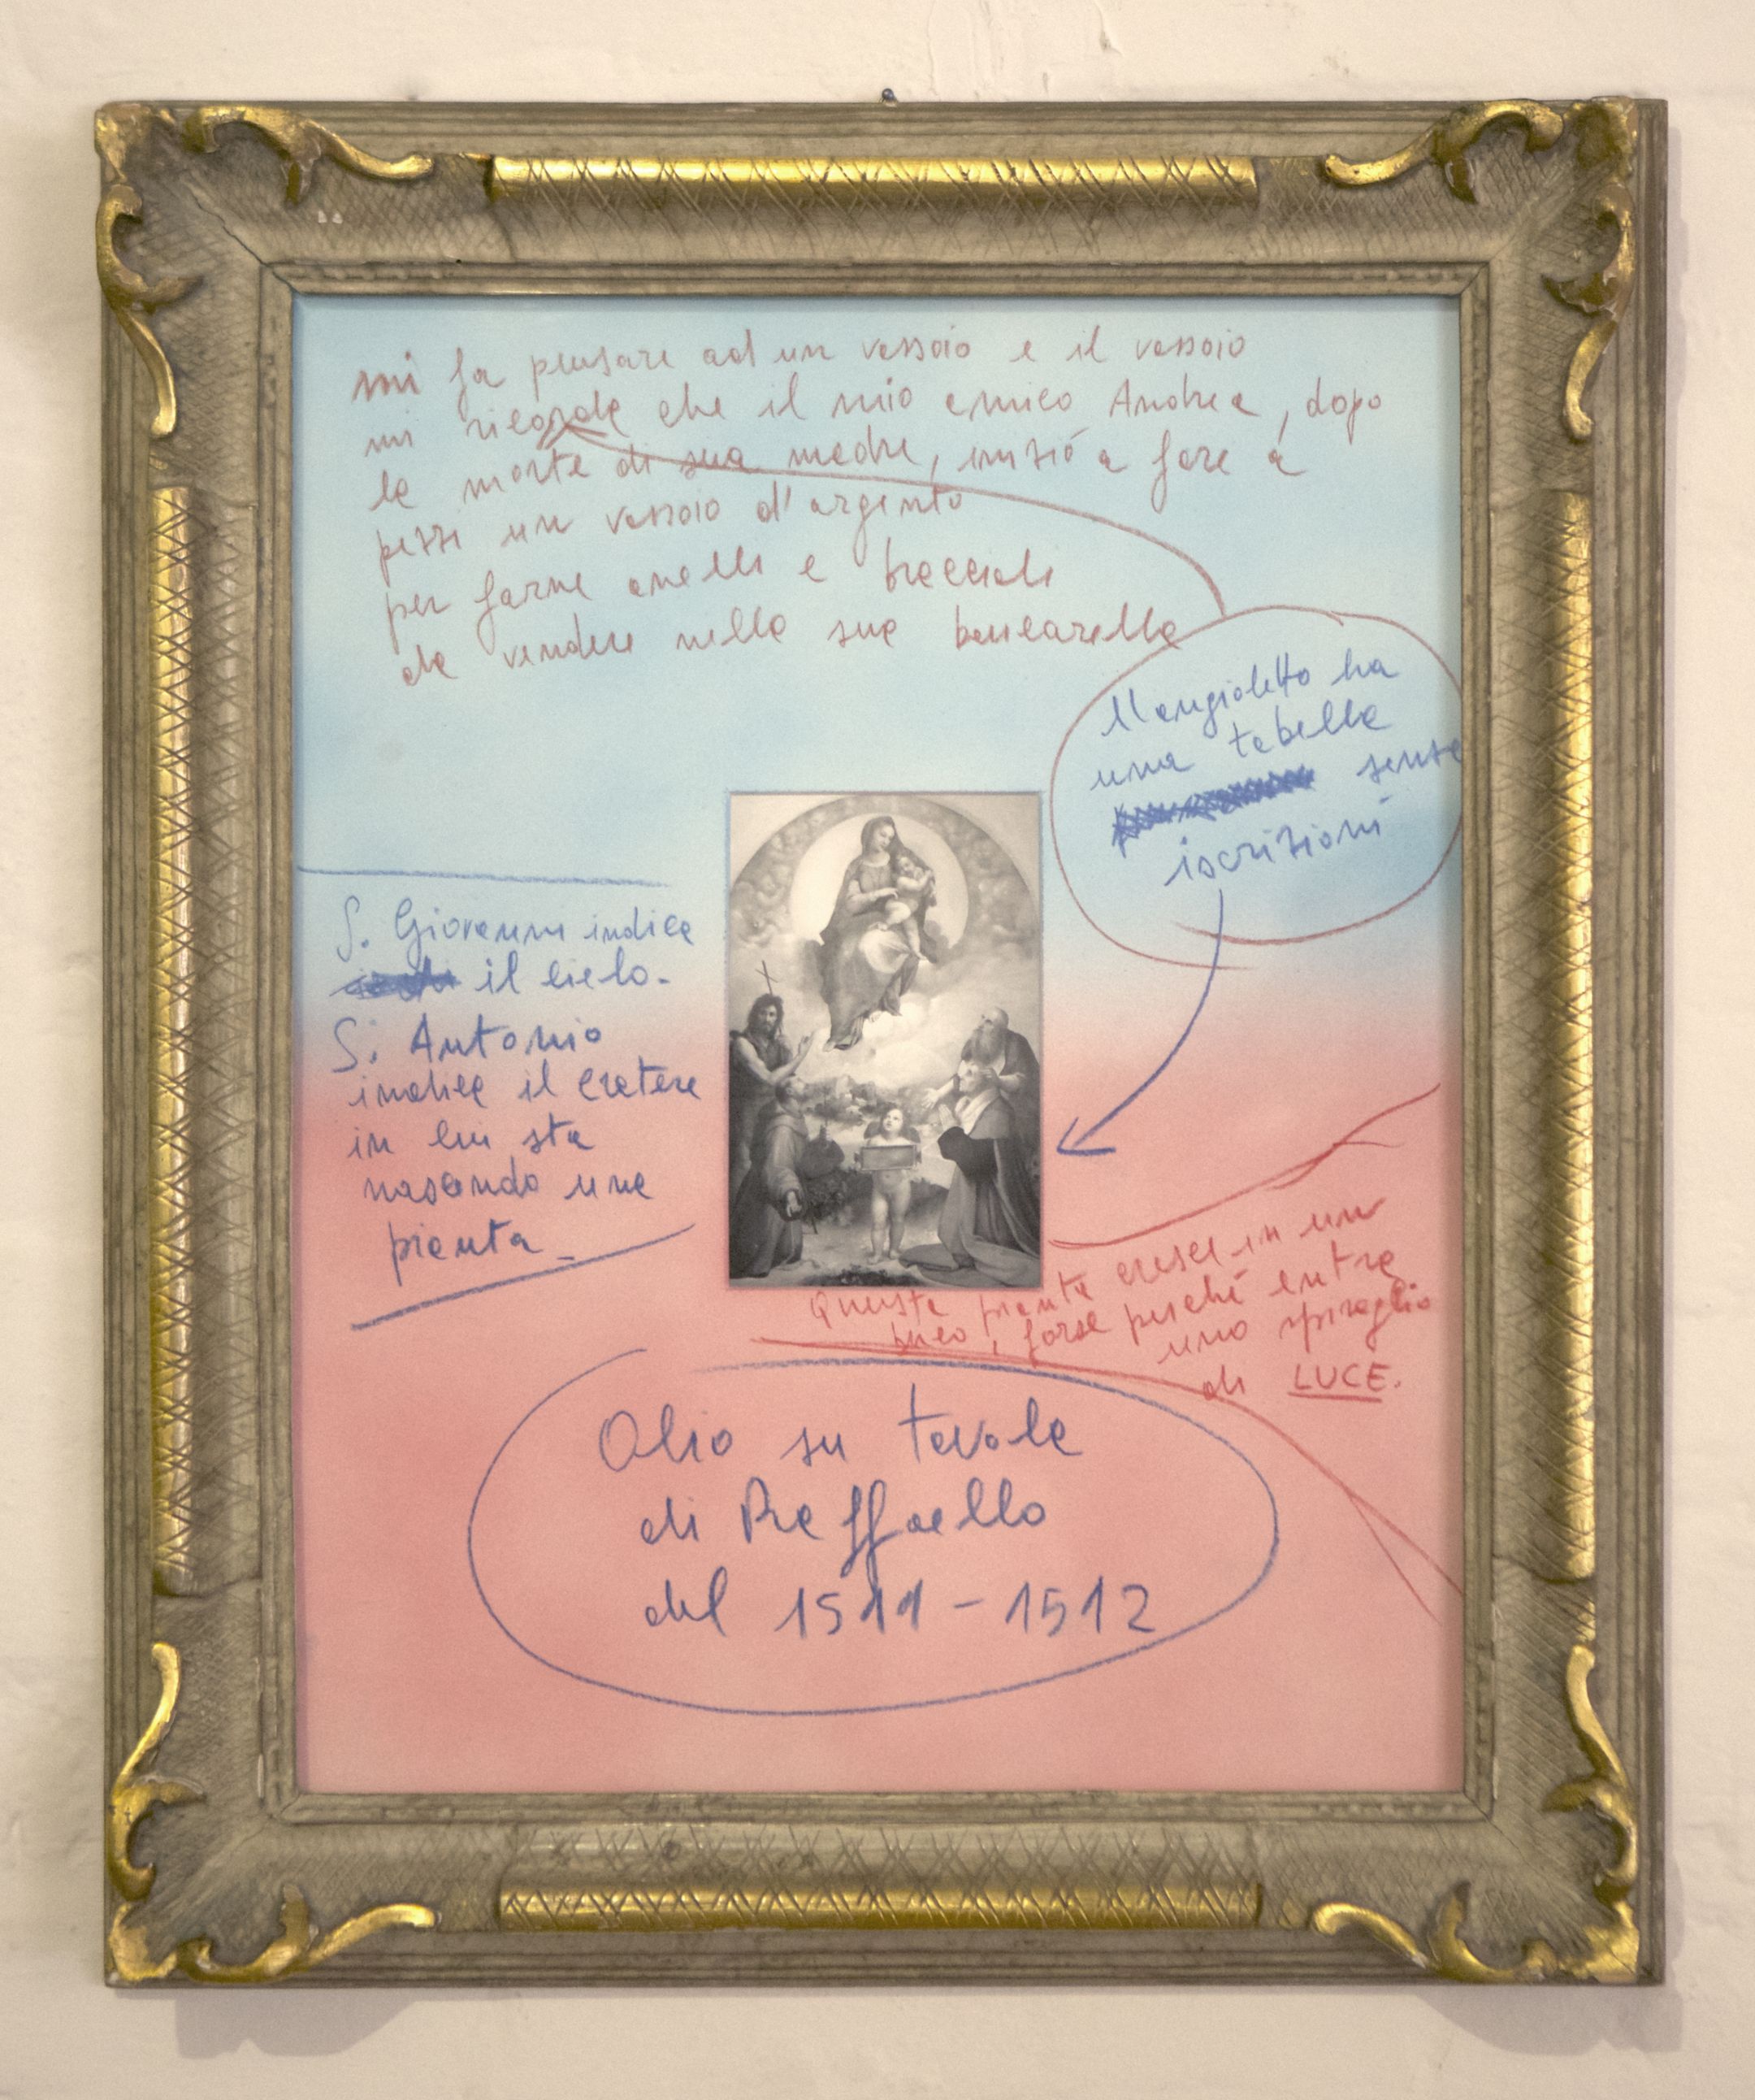 mi fa pensare ad un vassoio e il vassoio
mi ricorda che il mio amico Andrea, dopo
la morte di sua madre, iniziò a fare a
pezzi un vassoio d'argento
per farne anelli e bracciali
da vendere nella sua bancarella
l'angioletto ha
una tabella
senza
iscrizioni
S. Giovanni indica
il cielo.
S. Antonio
indica il cratere
in cui sta
nascendo una
pianta
Questa pianta cresce in un
buco, forse perché entra
uno spiraglio
di LUCE.
Olio su tavola
di Raffaello
del 1511-1512